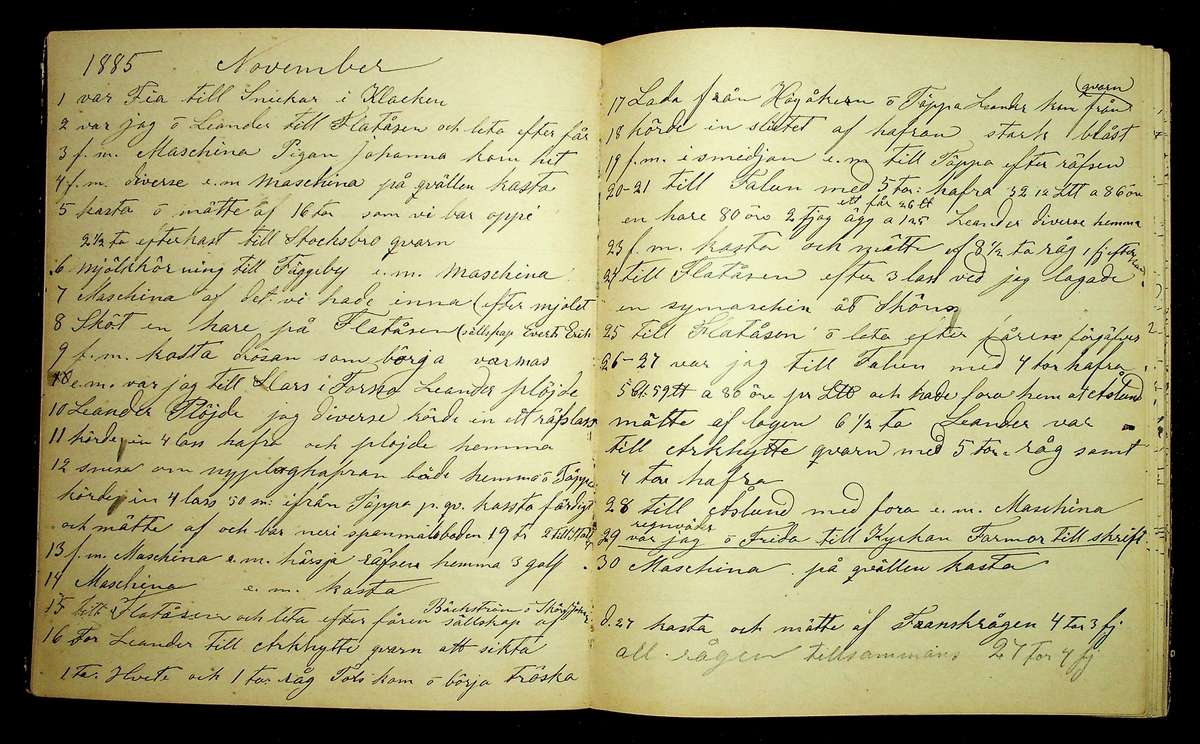 1885 November
1 var Fia till Snickar i Klacken
2 var jag o Leander till Flatåsen och leta efter får
3 f.m. Maschina Pigan Johanna kom hit
4 f.m. diverse e.m Maschina på qvällen kasta
5 kasta ö mätte af 16 tor som vi bar oppe
2 1/2 ta efterkast till Stocksbro qvarn
6 mjölkkörning till Täggeby e.m. Maschina
7 Maschina af det vi hade enna (efter mjolet
8 Sköt en hare på Flatåsen (sällskap Everts Erik
9 f.m. kasta drösan som börja varmas
e.m. var jag till Lars i Forsbo Leander plöjde
10 Leander Plöjde jag diverse körde in ett räfslass
11 körde in 4 lass hafra och plöjde hemma
12 snesa om nyploghafran både hemma ö Täppa
körde in 4 lass 50 m: ifrån Täppa p. qv. kassta färdigt
och mätte af och bar neri spanmålsboden 19 tr
13 f.m. Maschina e.m. härsja räfsen hemma 3 golf
14 Maschina e.m. kasta
15 till Flatåsen och leta efter fåren sällskap af Bäckström ö
16 for Leander till Arkhytte qvarn att sikta
1 ta: Hvete och 1 tor: råg kom ö börja tröska
17 Lada från Högåkern ö Täppa Leander kom från qvarn
18 körde in slutet af hafran stark blåst
19 f.m. i smedjan e.m till Täppa efter räfsen
20-21 till Falun med 5 tor: hafra 32 1/2 Ltt a 86 öre
ett får 26 tt
en hare 80 öre 2 tjog ägg a 1,25 Leander diverse hemma
23 f.m. kasta och mätte af 8 1/2 ta råg 1 fj efter
24 till Flatåsen efter 3 lass ved jag lagade
en symaschin åt Sköns
25 till Flatåsen ö leta efter fåren förgäfves
26-27 var jag till Falun med 4 tor hafra
5 Ct. 59 tt a 80 öre pr Ltt och hade fora hem at Åslund
mätte af logen 6 1/2 ta Leander var
till Arkhytte qvarn med 5 tor: råg samt
4 tor hafra
28 till Åslund med fora e.m. Maschina
regnväder
29 var jag ö Frida till Kyrkan Farmor till skrift
30 Maschina på qvällen kasta
d. 27 kasta och mätte af Franskrågen 4 tor 3 fj
all rågen tillsammans 27 tor 4 fj